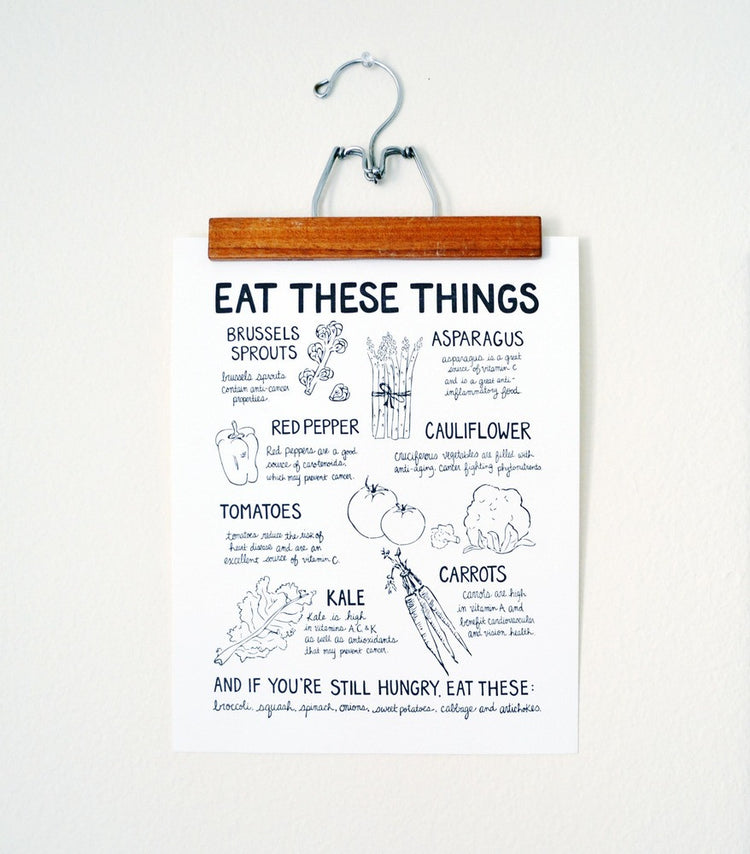 EAT THESE THINGS
BRUSSELS
SPROUTS
brussels sprouts
contain anti-cancer
properties.
ASPARAGUS
asparagus is a great
source of vitamin C
and is a great anti-
inflammatory food.
RED PEPPER
Red peppers are a good
source of carotenoids,
which may prevent cancer.
CAULIFLOWER
cruciferous vegetables are filled with
anti-aging, cancer fighting phytonutrients
TOMATOES
tomatoes reduce the risk of
heart disease and are an
excellent source of vitamin C.
CARROTS
carrots are high
in vitamin A and
benefit cardiovascular
and vision health.
KALE
Kale is high
in vitamins A, C, & K
as well as antioxidants
that may prevent cancer.
AND IF YOU'RE STILL HUNGRY, EAT THESE:
broccoli, squash, spinach, onions, sweet potatoes, cabbage and artichokes.